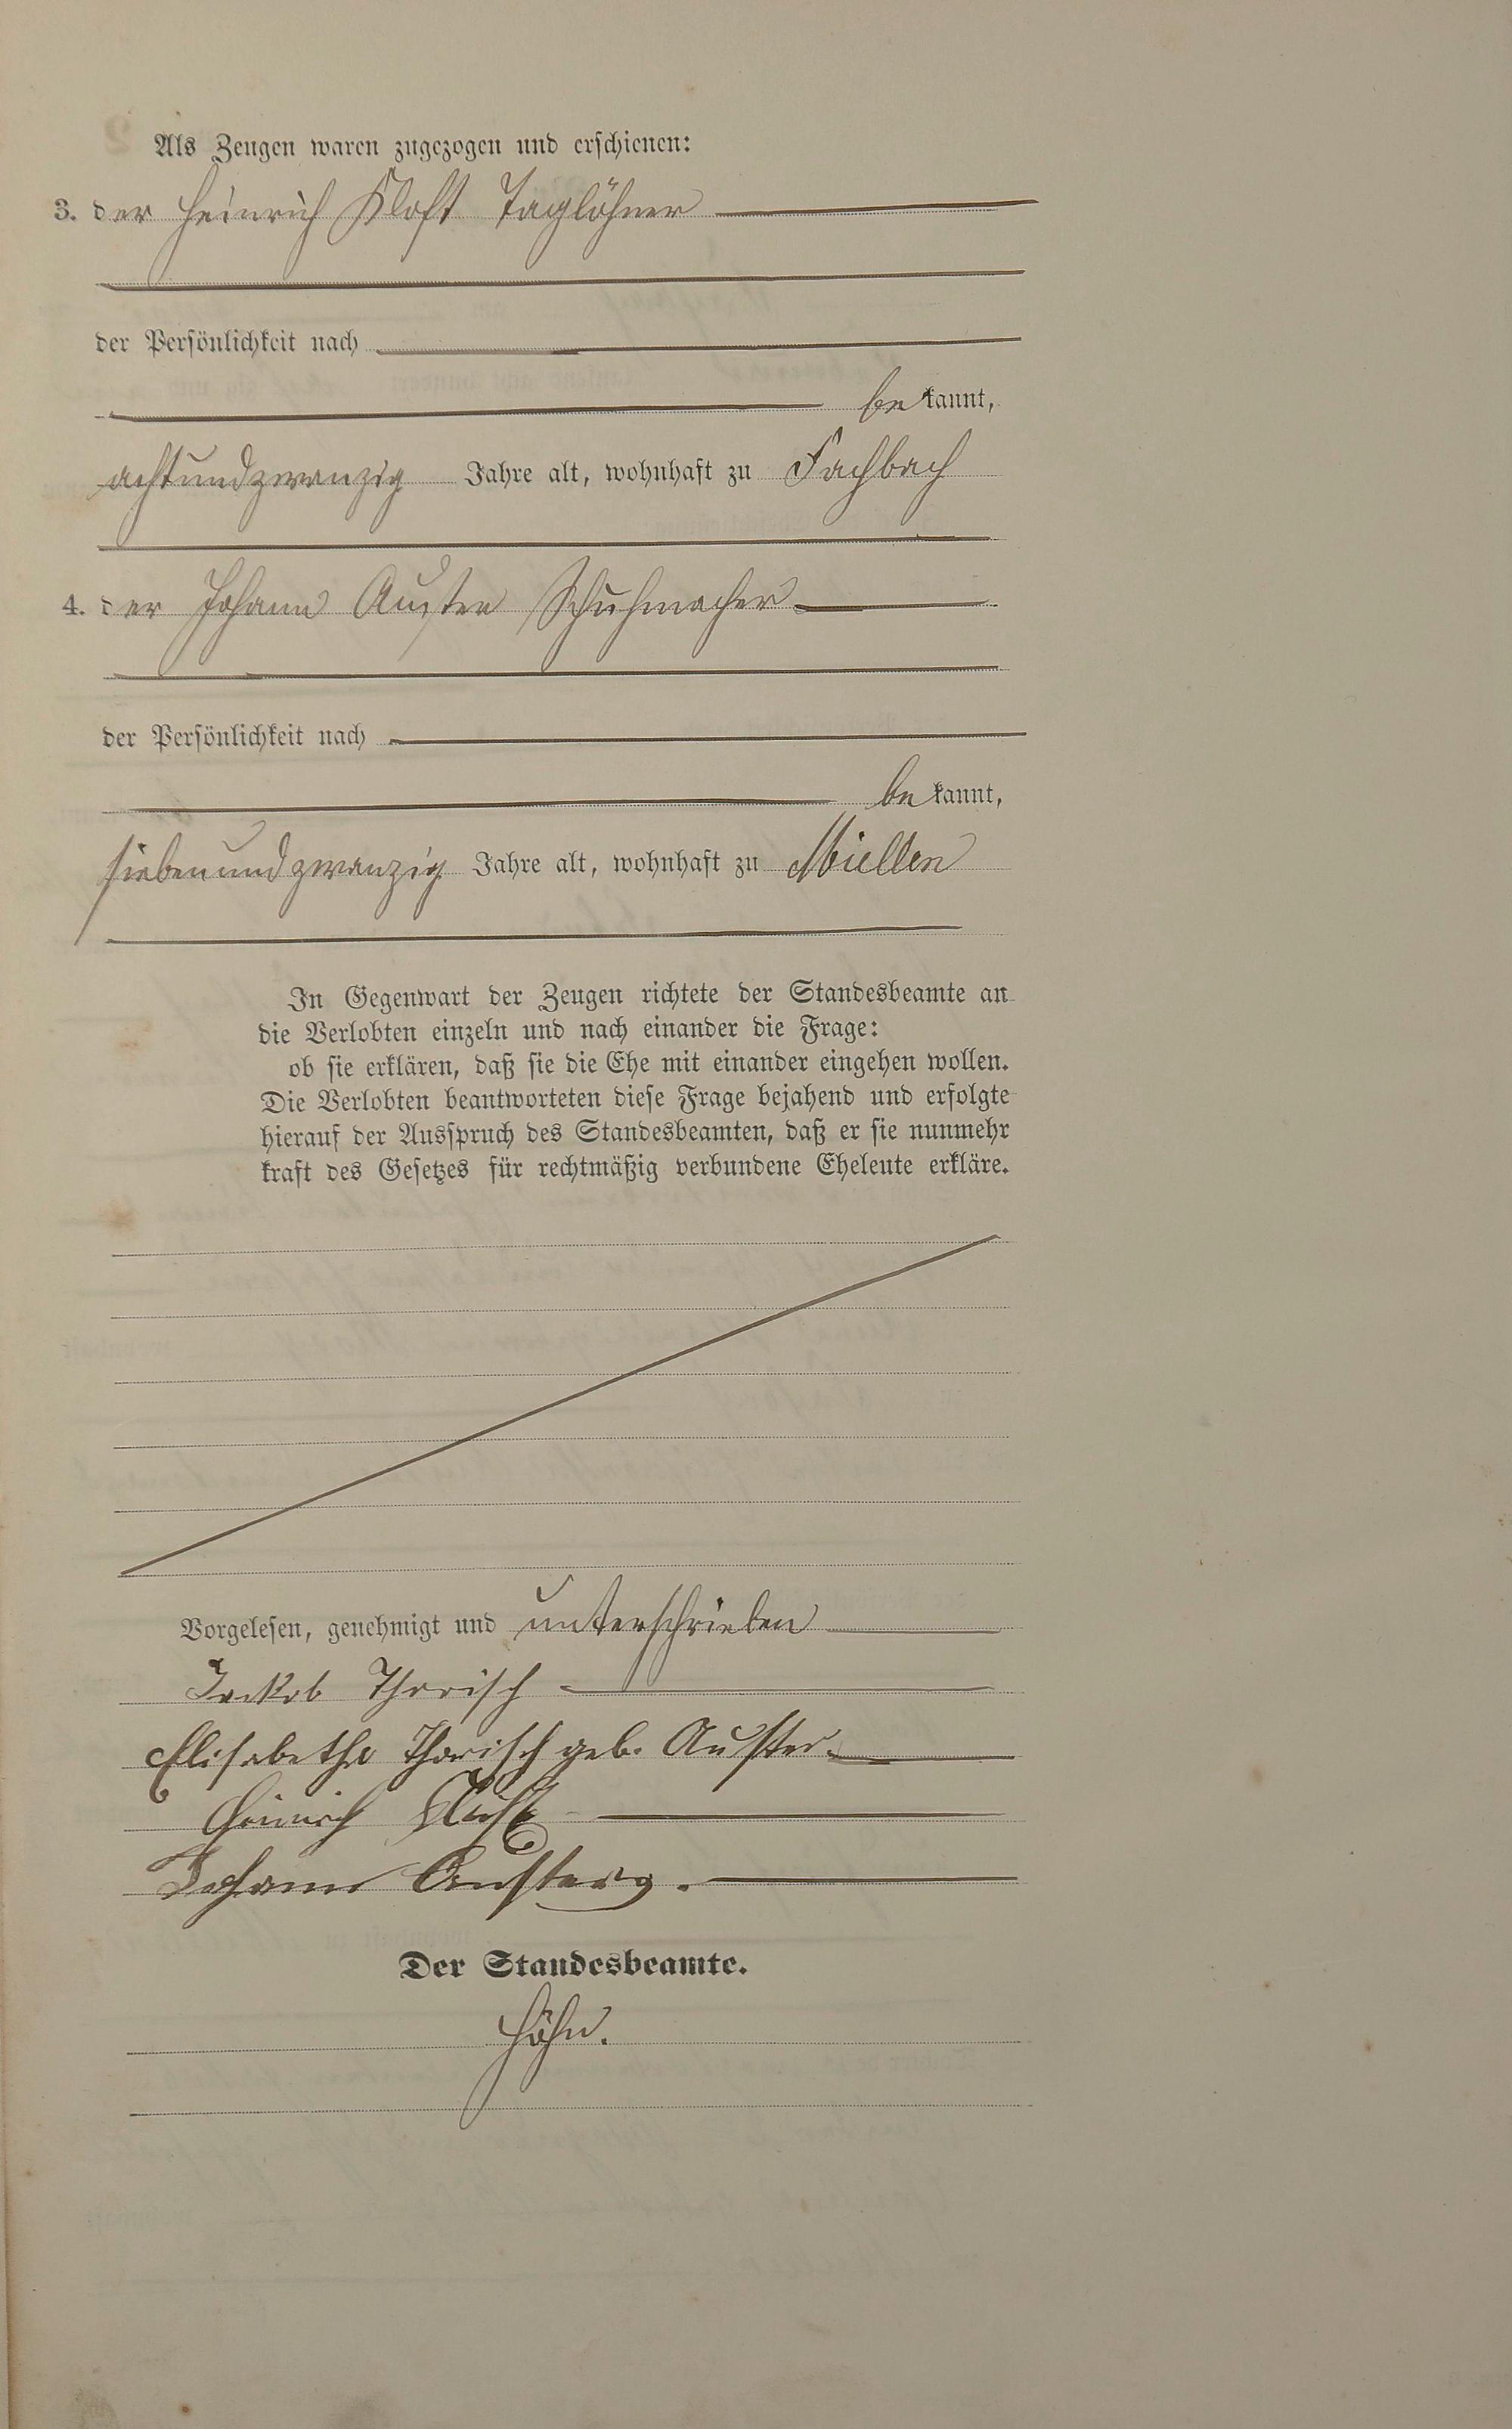 Als Zeugen waren zugezogen und erschienen:
3. der Heinrich Kloft Taglöhner
der Persönlichkeit nach
bekannt,
achtundzwanzig Jahre alt, wohnhaft zu Fachbach
4. der Johann Auster Schuhmacher
der Persönlichkeit nach
bekannt,
siebenundzwanzig Jahre alt, wohnhaft zu Miellen
In Gegenwart der Zeugen richtete der Standesbeamte an
die Verlobten einzeln und nach einander die Frage:
ob sie erklären, daß sie die Ehe mit einander eingehen wollen.
Die Verlobten beantworteten diese Frage bejahend und erfolgte
hierauf der Ausspruch des Standesbeamten, daß er sie nunmehr
kraft des Gesetzes für rechtmäßig verbundene Eheleute erkläre.
Vorgelesen, genehmigt und unterschrieben
Jackob Thorisch
Elisabetha Thorisch geb. Auster.
Heinrich Kloft
Johann
Der Standesbeamte.
Höhn.